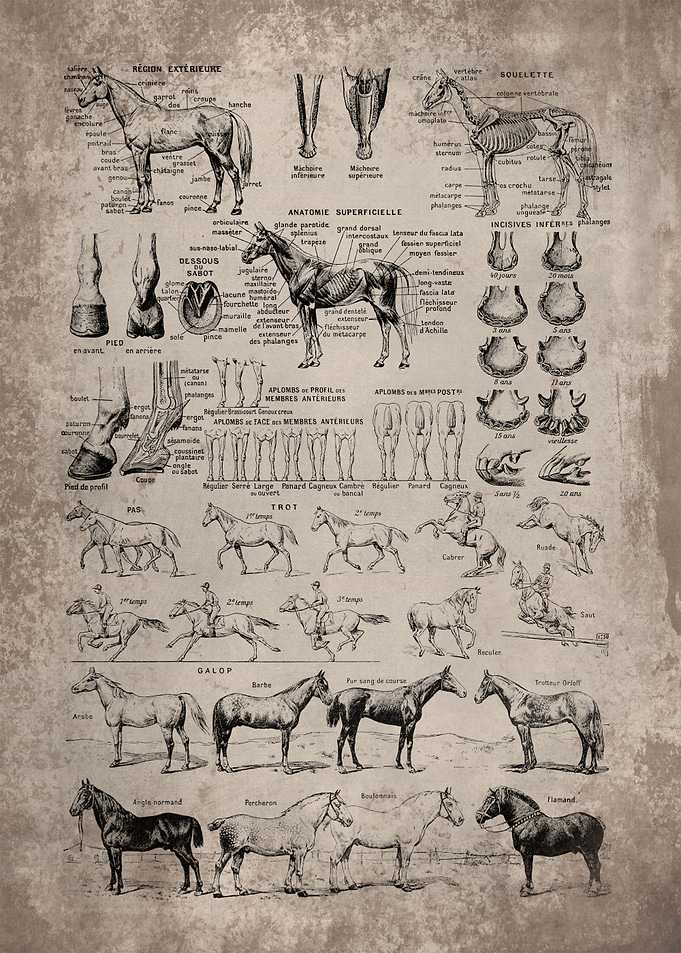 RÉGION EXTÉRIEURE
salière
chanfrein
naseau
lèvres
ganache
encolure
épaule
poitrail
bras
coude
avant bras
genou
canon
boulet
paturon
sabot
crinière
garrot
dos
reins
croupe
hanche
flanc
cuisse
ventre
grasset
châtaigne
jambe
jarret
fanon
couronne
pince
Mâchoire
inférieure
Mâchoire
supérieure
SQUELETTE
crâne
vertèbre
atlas
colonne vertébrale
mâchoire infre
omoplate
humérus
sternum
radius
carpe
métacarpe
phalanges
bassin
fémur
péroné
côtes
rotule
tibia
cubitus
calcanéum
tarse
astragale
os crochu
métatarse
stylet
phalange
unguéale
phalanges
ANATOMIE SUPERFICIELLE
orbiculaire
masséter
sus-naso-labial
glande parotide
splénius
trapèze
grand dorsal
intercostaux
grand
oblique
tenseur du fascia lata
fessier superficiel
moyen fessier
jugulaire
sterno
maxillaire
mastoïdo
huméral
long
abducteur
extenseur
de l'avant bras
extenseur
des phalanges
demi-tendineux
long-vaste
fascia lata
fléchisseur
profond
grand dentelé
extenseur
fléchisseur
du métacarpe
tendon
d'Achille
DESSOUS
DU
SABOT
glome
talon
quartier
lacune
fourchette
pince
mamelle
sole
pince
muraille
PIED
en avant
en arrière
INCISIVES INFÉRRES
40 jours
20 mois
3 ans
5 ans
8 ans
11 ans
15 ans
vieillesse
5 ans ½
20 ans
boulet
paturon
couronne
sabot
ergot
fanons
bourrelet
métatarse
ou
(canon)
phalanges
ergot
fanons
sésamoïde
coussinet
plantaire
ongle
ou sabot
Pied de profil
Coupe
APLOMBS DE PROFIL DES
MEMBRES ANTÉRIEURS
Régulier Brassicourt Genoux creux
APLOMBS DE FACE DES MEMBRES ANTÉRIEURS
Régulier Serré Large Panard Cagneux Cambré
ou ouvert ou bancal
APLOMBS DES MBRES POSTRS
Régulier Panard Cagneux
PAS
TROT
1er temps
2e temps
Cabrer
Ruade
1er temps
2e temps
3e temps
Reculer
Saut
GALOP
Arabe
Barbe
Pur sang de course
Trotteur Orloff
Anglo-normand
Percheron
Boulonnais
Flamand